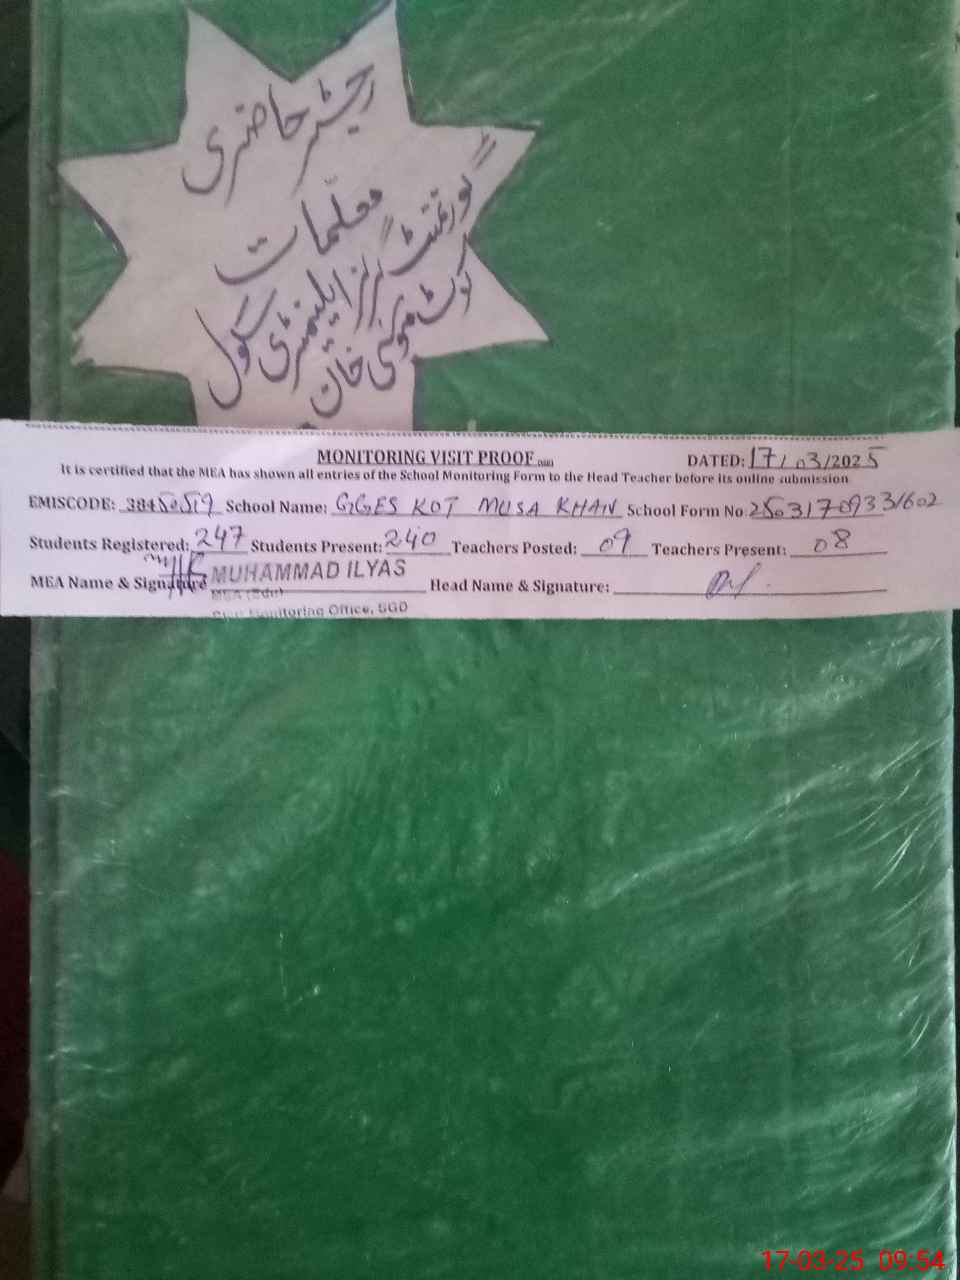 رجسٹر حاضری
معلّمات
گورنمنٹ گرلز ایلیمنٹری سکول
کوٹ موسیٰ خان
MONITORING VISIT PROOF
DATED: 17/03/2025
It is certified that the MEA has shown all entries of the School Monitoring Form to the Head Teacher before its online submission
EMISCODE: 38450519 School Name: GGES KOT MUSA KHAN School Form No. 25031709331602
Students Registered: 247 Students Present: 240 Teachers Posted: 09 Teachers Present: 08
MEA Name & Signature MUHAMMAD ILYAS Head Name & Signature:
MEA (Edu)
Monitoring Office, SGD
17-03-25 09:54